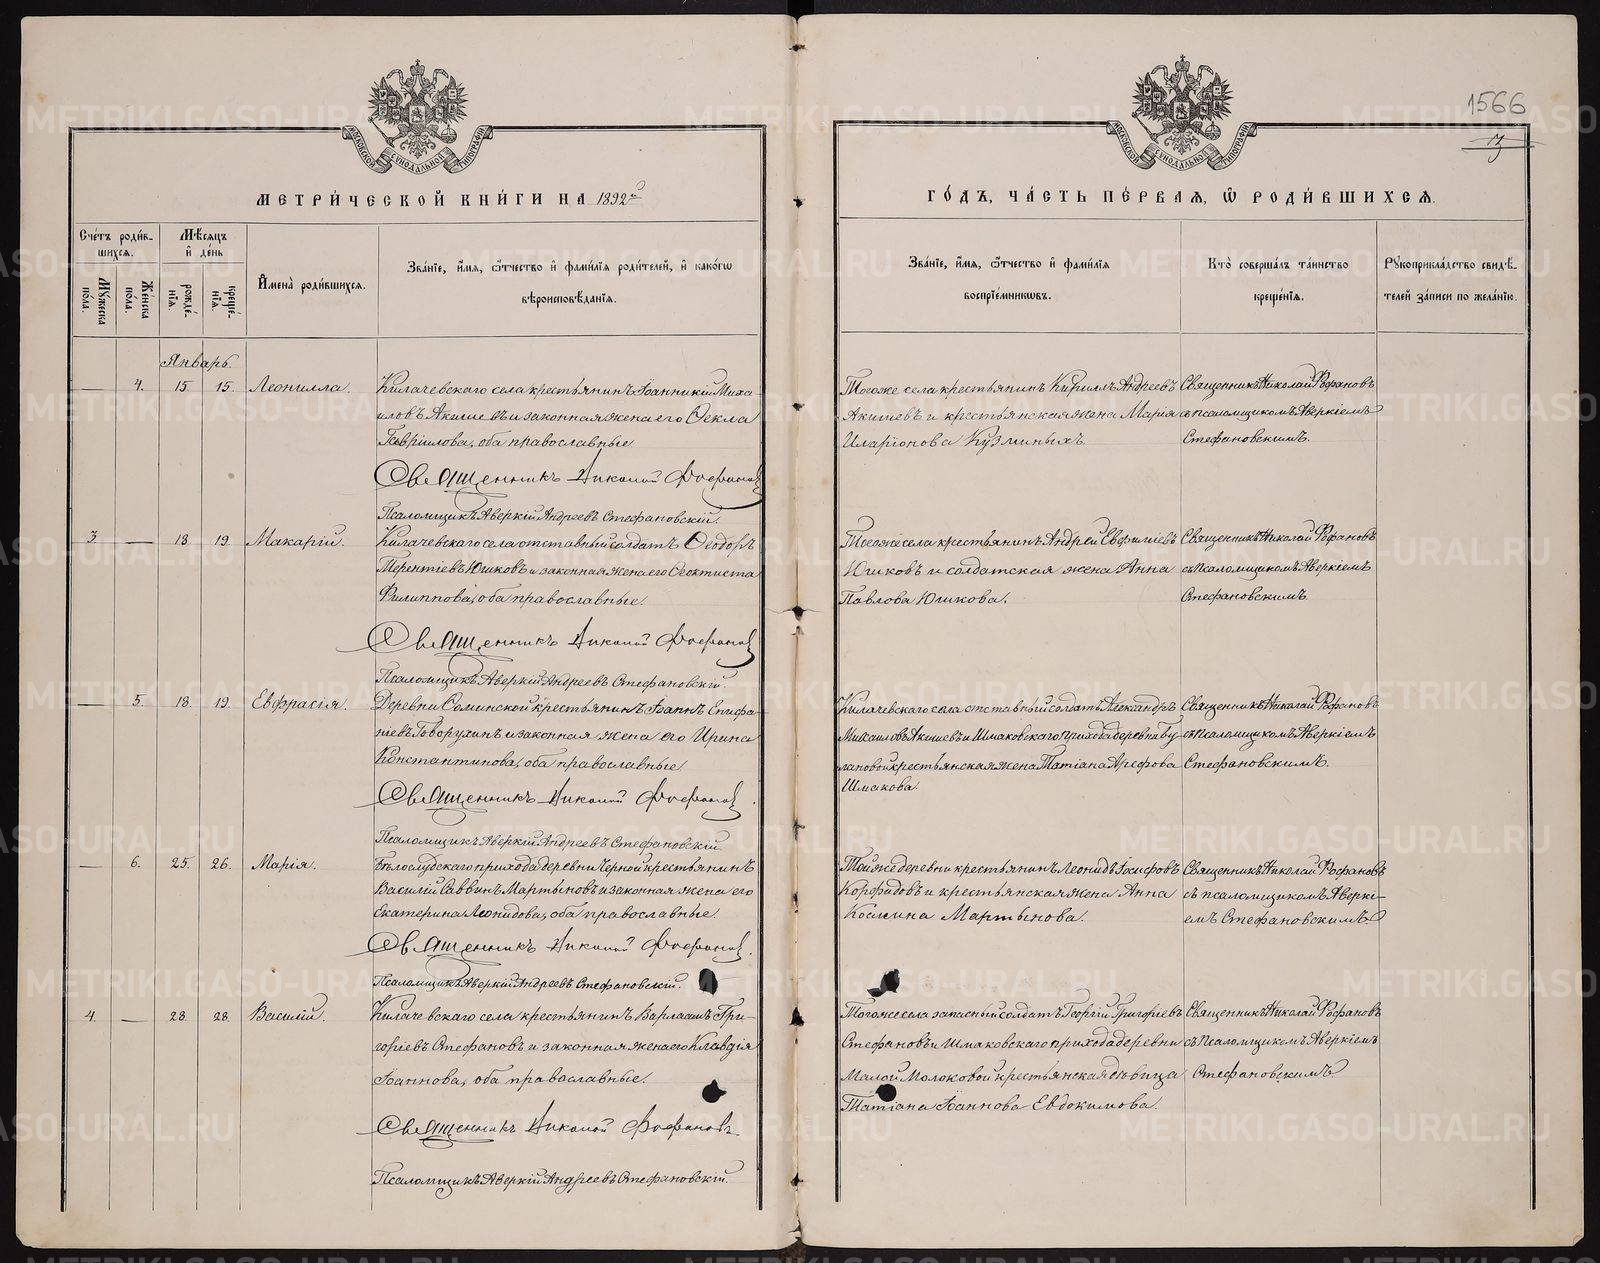 1566
МОСКОВСКОЙ СѴНОДАЛЬНОЙ ТИПОГРАФІИ
МОСКОВСКОЙ СѴНОДАЛЬНОЙ ТИПОГРАФІИ
МЕТРИ́ЧЕСКОЙ КНИ́ГИ НА 1892й
ГО́ДЪ, ЧА́СТЬ ПЕ́РВАЯ, Ѡ РОДИ́ВШИХСЯ.
Сче́тъ роди́в-
шихся.
Мꙋ́жеска по́ла.
Же́нска по́ла.
Мѣ́сяцъ
и де́нь
рожде́-
нїя.
креще́-
нїя.
Имена̀ роди́вшихся.
Зва́нїе, и́мя, ѻ́тчество и фами́лїя роди́телей, и како́гѡ
вѣроисповѣ́данїя.
Зва́нїе, и́мя, ѻ́тчество и фами́лїя
воспрїе́мникѡвъ.
Кто̀ соверша́лъ та́инство
креще́нїя.
Рꙋкоприкла́дство свидѣ́-
телей за́писи по жела́нїю.
Январь.
— 4. 15 15. Леонилла.
Килачевскаго села крестьянинъ Іоанникій Миха-
иловъ Акишевъ и законная жена его Ѳекла
Гавріилова, оба православные.
Священникъ Николай Фофановъ
Псаломщикъ Аверкій Андреевъ Стефановскій.
Тогоже села крестьянинъ Кириллъ Андреевъ
Акишевъ и крестьянская жена Марія
Иларіонова Кузминыхъ
Священникъ Николай Фофановъ
съ псаломщикомъ Аверкіемъ
Стефановскимъ.
3 — 18. 19. Макарій.
Килачевскаго села отставный солдатъ Ѳеодоръ
Терентіевъ Юшковъ и законная жена его Ѳеоктиста
Филиппова, оба православные.
Священникъ Николай Фофановъ
Псаломщикъ Аверкій Андреевъ Стефановскій.
Тогоже села крестьянинъ Андрей Евфиміевъ
Юшковъ и солдатская жена Анна
Павлова Юшкова.
Священникъ Николай Фофановъ
съ псаломщикомъ Аверкіемъ
Стефановскимъ
— 5. 18. 19. Евфрасія.
Деревни Соминской крестьянинъ Іоаннъ Епифа-
ніевъ Говорухинъ и законная жена его Ирина
Константинова, оба православные
Священникъ Николай Фофановъ.
Псаломщикъ Аверкій Андреевъ Стефановскій
Килачевскаго села отставный солдатъ Александръ
Михаиловъ Акишевъ и Шмаковскаго прихода деревни Бу-
лановой крестьянская жена Татіана Арефова
Шмакова.
Священникъ Николай Фофановъ
съ псаломщикомъ Аверкіемъ
Стефановскимъ.
— 6. 25. 26. Марія.
Бѣлослудскаго прихода деревни Черной крестьянинъ
Василій Саввинъ Мартыновъ и законная жена его
Екатерина Леонидова, оба православные.
Священникъ Николай Фофановъ.
Псаломщикъ Аверкій Андреевъ Стефановскій.
Той же деревни крестьянинъ Леонидъ Іосифовъ
Корфидовъ и крестьянская жена Анна
Космина Мартынова.
Священникъ Николай Фофановъ
съ псаломщикомъ Аверкі-
емъ Стефановскимъ
4. — 28. 28. Василій.
Килачевскаго села крестьянинъ Варлаамъ Гри-
горіевъ Стефановъ и законная жена его Клавдія
Іоаннова, оба православные.
Священникъ Николай Фофановъ
Псаломщикъ Аверкій Андреевъ Стефановскій.
Тогоже села запасный солдатъ Георгій Григоріевъ
Стефановъ и Шмаковскаго прихода деревни
Малой Молоковой крестьянская дѣвица
Татіана Іоаннова Евдокимова.
Священникъ Николай Фофановъ
съ псаломщикомъ Аверкіемъ
Стефановскимъ
METRIKI.GASO-URAL.RU